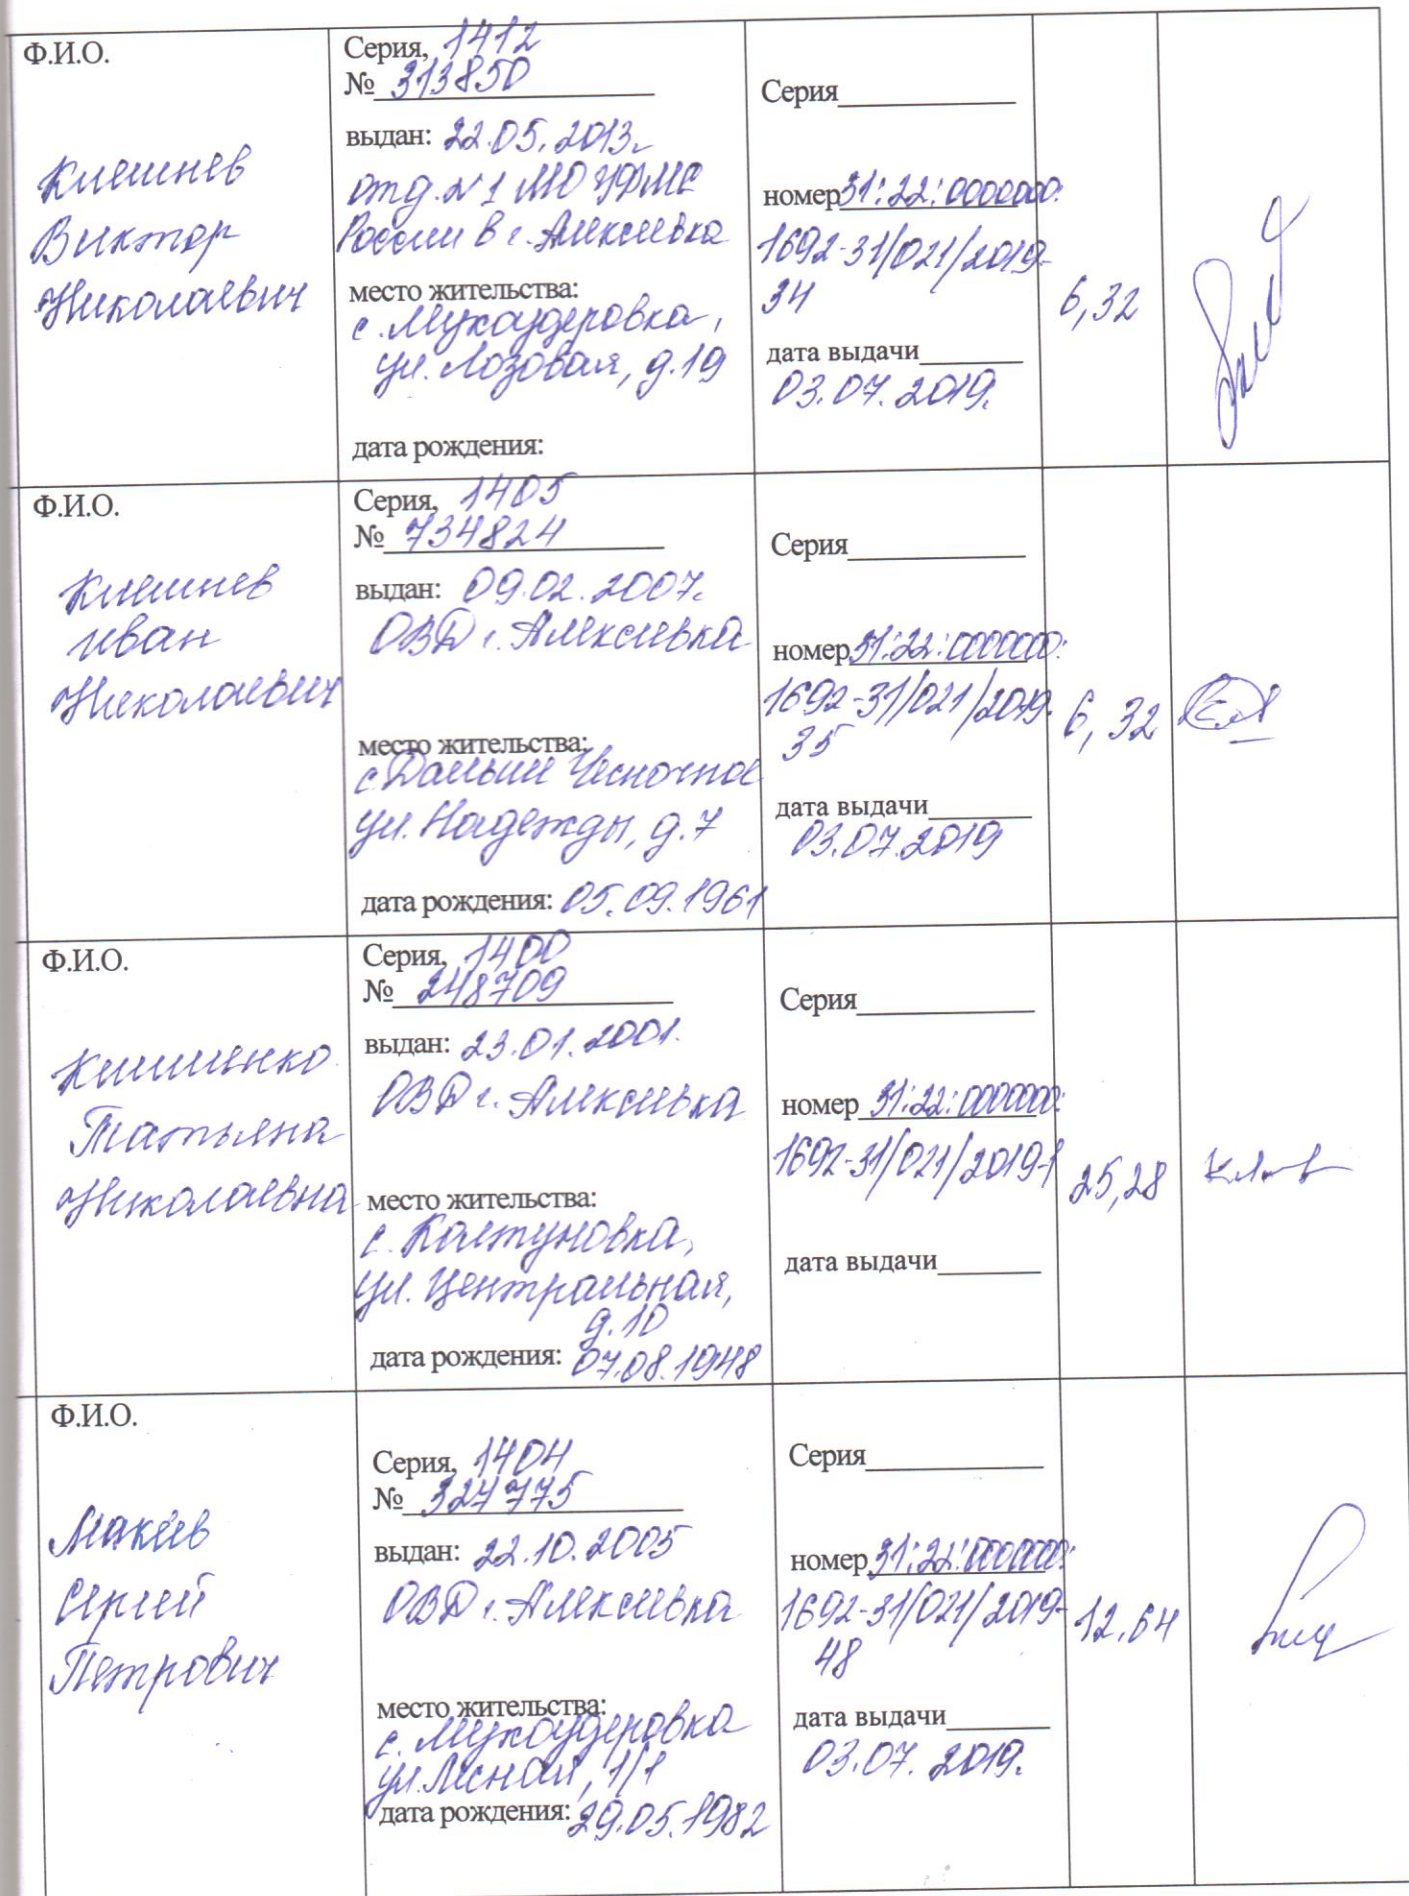 Ф.И.О.
Клешнев
Виктор
Николаевич
Серия, 1412
№ 313850
выдан: 22.05.2013г.
отд. №1 МО УФМС
России в г. Алексеевка
место жительства:
с. Мухоудеровка,
ул. Лозовая, д.19
дата рождения:
Серия
номер 31:22:0000000:
1692-31/021/2019-
34
дата выдачи
03.07.2019г.
6,32
Ф.И.О.
Клешнев
Иван
Николаевич
Серия, 1405
№ 734824
выдан: 09.02.2007г.
ОВД г. Алексеевка
место жительства:
с. Дальнее Чесночное
ул. Надежды, д.7
дата рождения: 05.09.1961
Серия
номер 31:22:0000000:
1692-31/021/2019-
35
дата выдачи
03.07.2019
6,32
Ф.И.О.
Татьяна
Николаевна
Серия, 1400
№ 248709
выдан: 23.01.2001.
ОВД г. Алексеевка
место жительства:
с. Колтуновка,
ул. Центральная,
д.10
дата рождения: 07.08.1948
Серия
номер 31:22:0000000:
1692-31/021/2019-1
дата выдачи
25,28
Ф.И.О.
Макеев
Сергей
Петрович
Серия, 1404
№ 327775
выдан: 22.10.2005
ОВД г. Алексеевка
место жительства:
с. Мухоудеровка
ул. Лесная, 1/1
дата рождения: 29.05.1982
Серия
номер 31:22:0000000:
1692-31/021/2019-
48
дата выдачи
03.07.2019г.
12,64